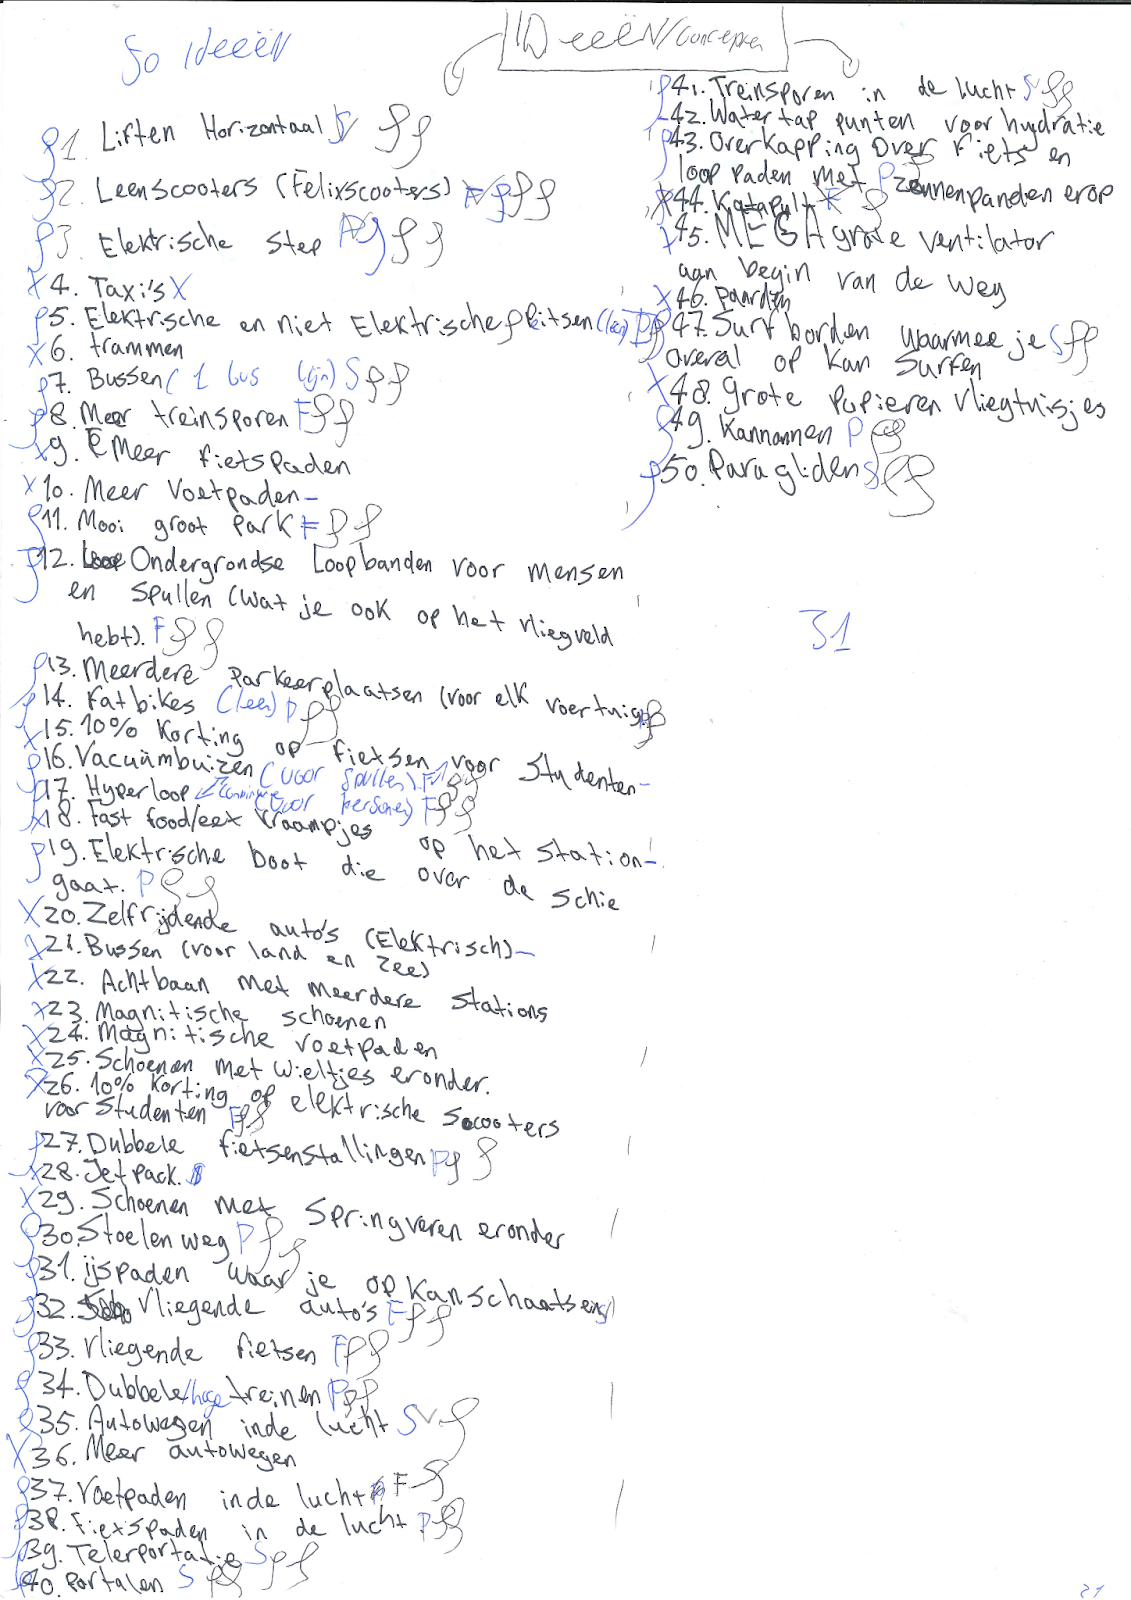 50 ideeën
IDeeëN/concepten
1. Liften Horizontaal S
2. Leenscooters (Felixscooters)
3. Elektrische step
X 4. Taxi's X
5. Elektrische en niet Elektrische fietsen (leen) P
X 6. trammen
7. Bussen (1 bus lijn) S
8. Meer treinsporen F
X 9. Meer fietspaden
X 10. Meer Voetpaden -
11. Mooi groot park F
12. Ondergrondse Loopbanden voor mensen
en spullen (wat je ook op het vliegveld
hebt). F
13. Meerdere parkeerplaatsen (voor elk voertuig)
14. Fatbikes (leen) P
X 15. 10% Korting op fietsen voor Studenten -
16. Vacuümbuizen (voor spullen) F
17. Hyperloop (voor personen) F
X 18. Fast food/eet kraampjes op het station -
19. Elektrische boot die over de schie
gaat. P
X 20. Zelfrijdende auto's (Elektrisch) -
X 21. Bussen (voor land en zee)
X 22. Achtbaan met meerdere stations
X 23. Magnitische schoenen
X 24. Magnitische voetpaden
X 25. Schoenen met wieltjes eronder.
X 26. 10% Korting op elektrische scooters
voor studenten F
27. Dubbele fietsenstallingen P
X 28. Jetpack. S
X 29. Schoenen met Springveren eronder
30. Stoelenweg P
31. ijspaden waar je op kan schaatsen
32. Vliegende auto's F
33. Vliegende fietsen F
34. Dubbele/hoge treinen P
35. Autowegen inde lucht S
X 36. Meer autowegen
37. Voetpaden inde lucht F
38. Fietspaden in de lucht P
39. Telerportatie S
40. Portalen S
41. Treinsporen in de lucht S
42. Watertap punten voor hydratie
43. Overkapping over fiets en
loop paden met zonnenpanden erop
X 44. Katapult F
X 45. MEGA grote ventilator
aan begin van de weg
X 46. paarden
47. Surf borden waarmee je S
overal op kan surfen
X 48. grote papieren vliegtuisjes
49. Kannonnen P
50. Paragliden S
31
21